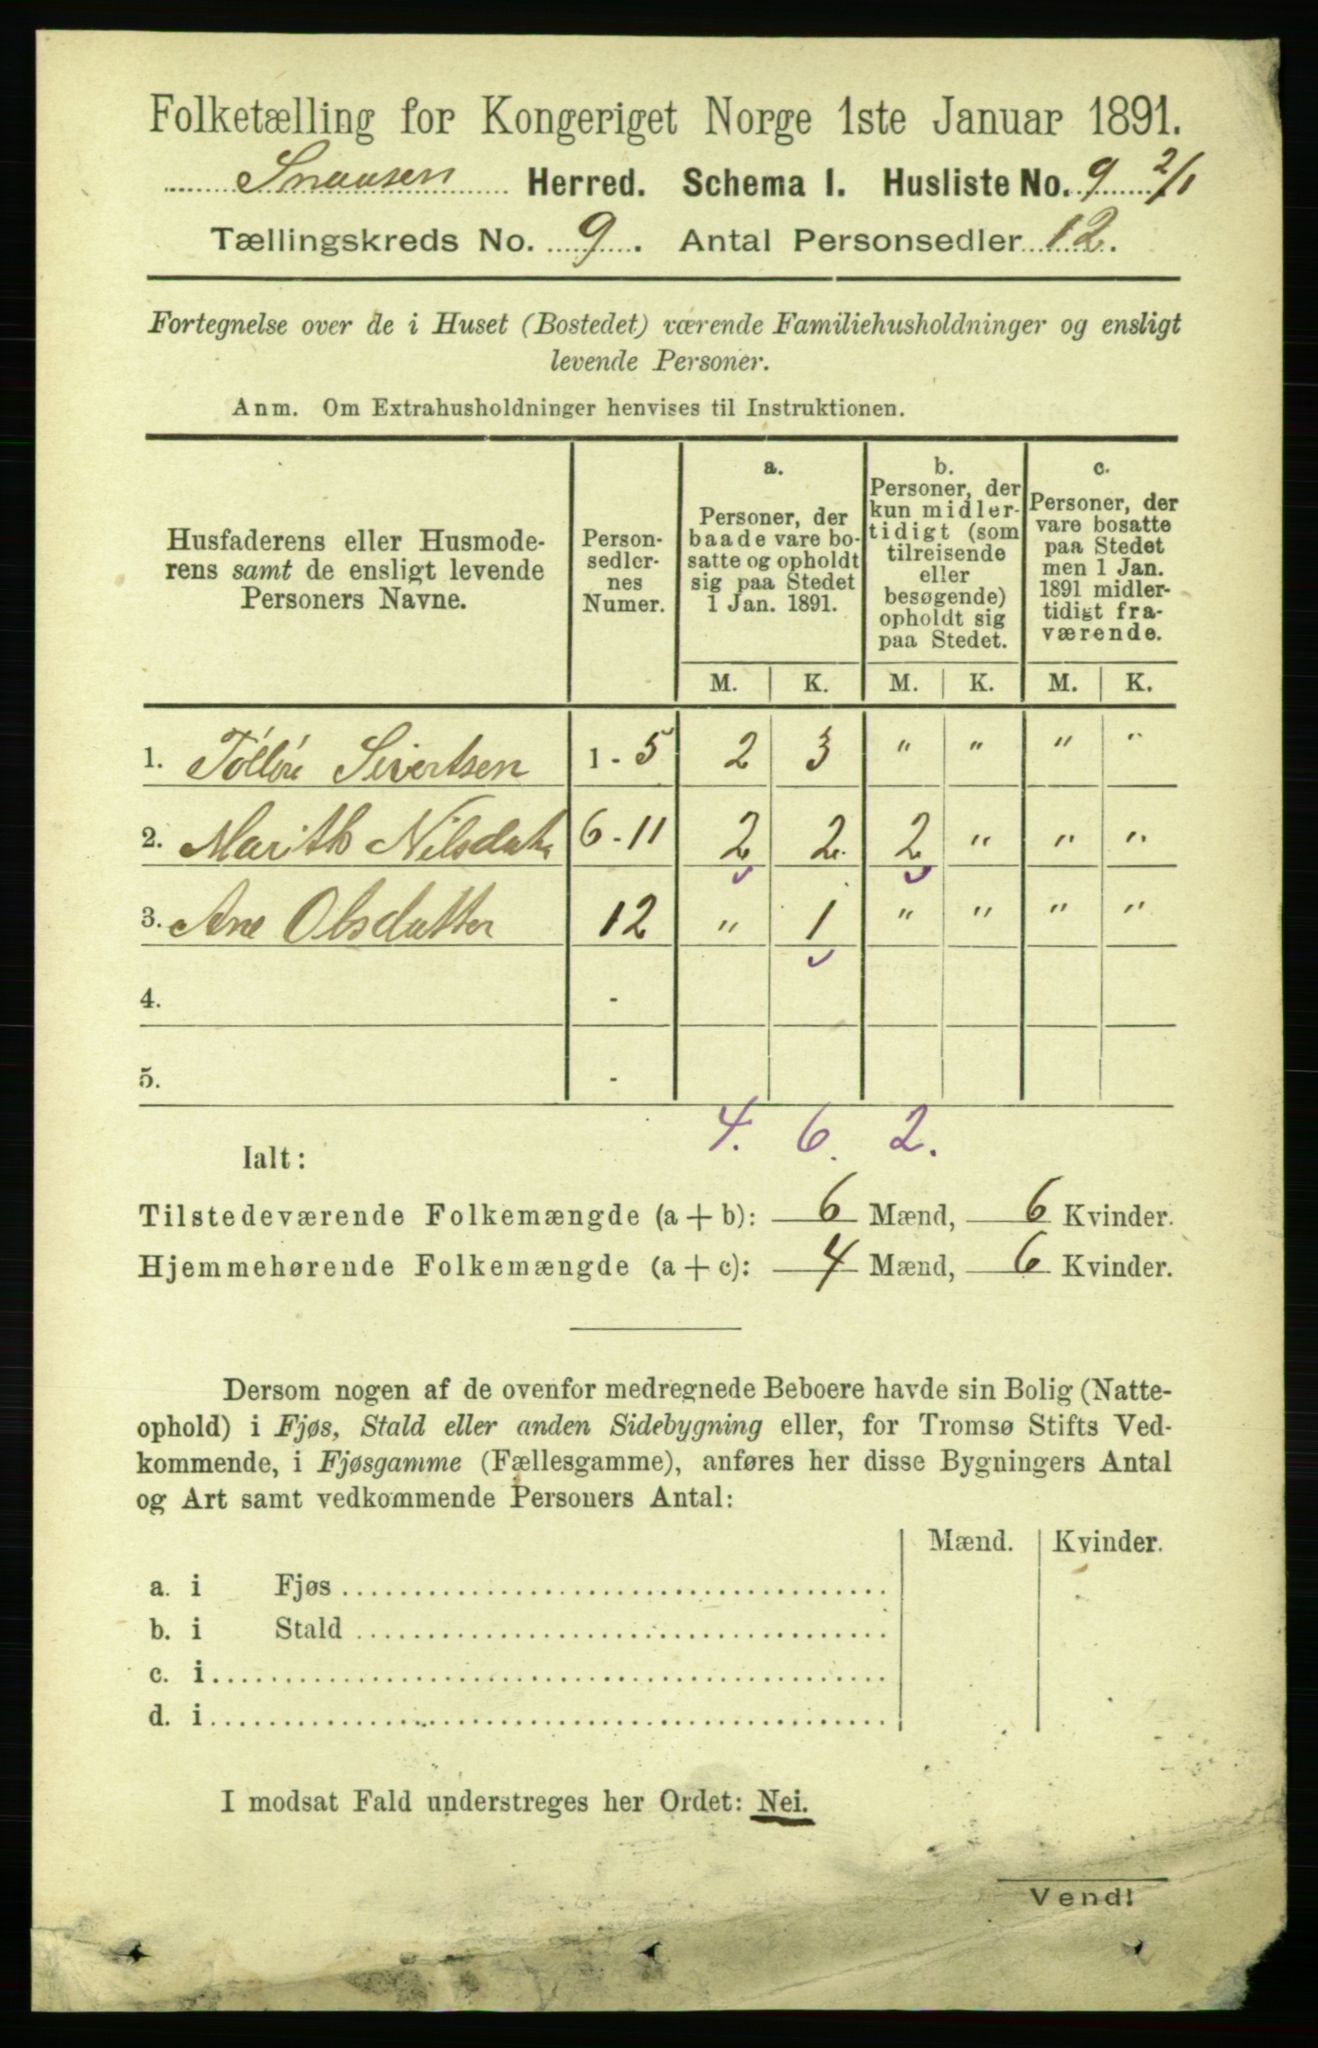 Folketælling for Kongeriget Norge 1ste Januar 1891.
Snaasen Herred. Schema I. Husliste No. 9 2/1
Tællingskreds No. 9. Antal Personsedler 12.
Fortegnelse over de i Huset (Bostedet) værende Familiehusholdninger og ensligt
levende Personer.
Anm. Om Extrahusholdninger henvises til Instruktionen.
Husfaderens eller Husmode-
rens samt de ensligt levende
Personers Navne.
Person-
sedler-
nes
Numer.
a.
Personer, der
baade vare bo-
satte og opholdt
sig paa Stedet
1 Jan. 1891.
b.
Personer, der
kun midler-
tidigt (som
tilreisende
eller
besøgende)
opholdt sig
paa Stedet.
c.
Personer, der
vare bosatte
paa Stedet
men 1 Jan.
1891 midler-
tidigt fra-
værende.
M. K. M. K. M. K.
1. Sivertsen 1 - 5 2 3 " " " "
2. Marith Nilsdatr 6 - 11 2 2 2 " " "
3. Ane Olsdatter 12 " 1 " " " "
4. -
5. -
4. 6. 2.
Ialt:
Tilstedeværende Folkemængde (a + b): 6 Mænd, 6 Kvinder.
Hjemmehørende Folkemængde (a + c): 4 Mænd, 6 Kvinder.
Dersom nogen af de ovenfor medregnede Beboere havde sin Bolig (Natte-
ophold) i Fjøs, Stald eller anden Sidebygning eller, for Tromsø Stifts Ved-
kommende, i Fjøsgamme (Fællesgamme), anføres her disse Bygningers Antal
og Art samt vedkommende Personers Antal:
Mænd. Kvinder.
a. i Fjøs
b. i Stald
c. i
d. i
I modsat Fald understreges her Ordet: Nei.
Vend!